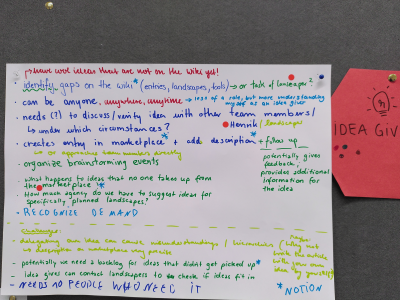 ↳ have wild ideas that are not on the wiki yet!
identify gaps on the wiki* (entries, landscapes, tools) → or talk of landscaper?
• can be anyone, anywhere, anytime → less of a role, but more understanding
myself as an idea giver
• needs (?) to discuss / verify idea with other team members /
↳ under which circumstances? Hannik / landscaper
• creates entry in marketplace + add description* + follow up
↳ or approaches team members directly
• organize brainstorming events
potentially gives
feedback,
provides additional
information for
the idea
• What happens to ideas that no one takes up from
the marketplace?*
• How much agency do we have to suggest ideas for
specifically planned landscapes?
• RECOGNIZE DEMAND
challenges:
• delegating an idea can cause misunderstandings /
↳ description in marketplace very precise
• potentially we need a backlog for ideas that didn't get picked up*
• Idea givers can contact landscapers to check if ideas fit in
• NEEDS NO PEOPLE WHO NEED IT
*NOTION
IDEA GIV